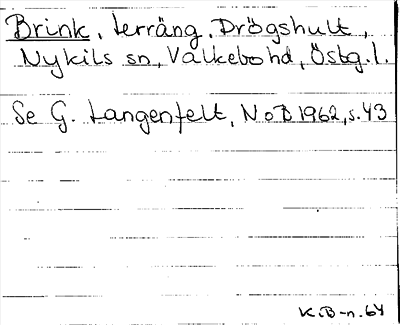 Brink, terräng, Drögshult,
Nykils sn, Valkebo hd, Ösbg. l.
Se G. Langenfelt, NoB 1962, s. 43
K.B-n. 64